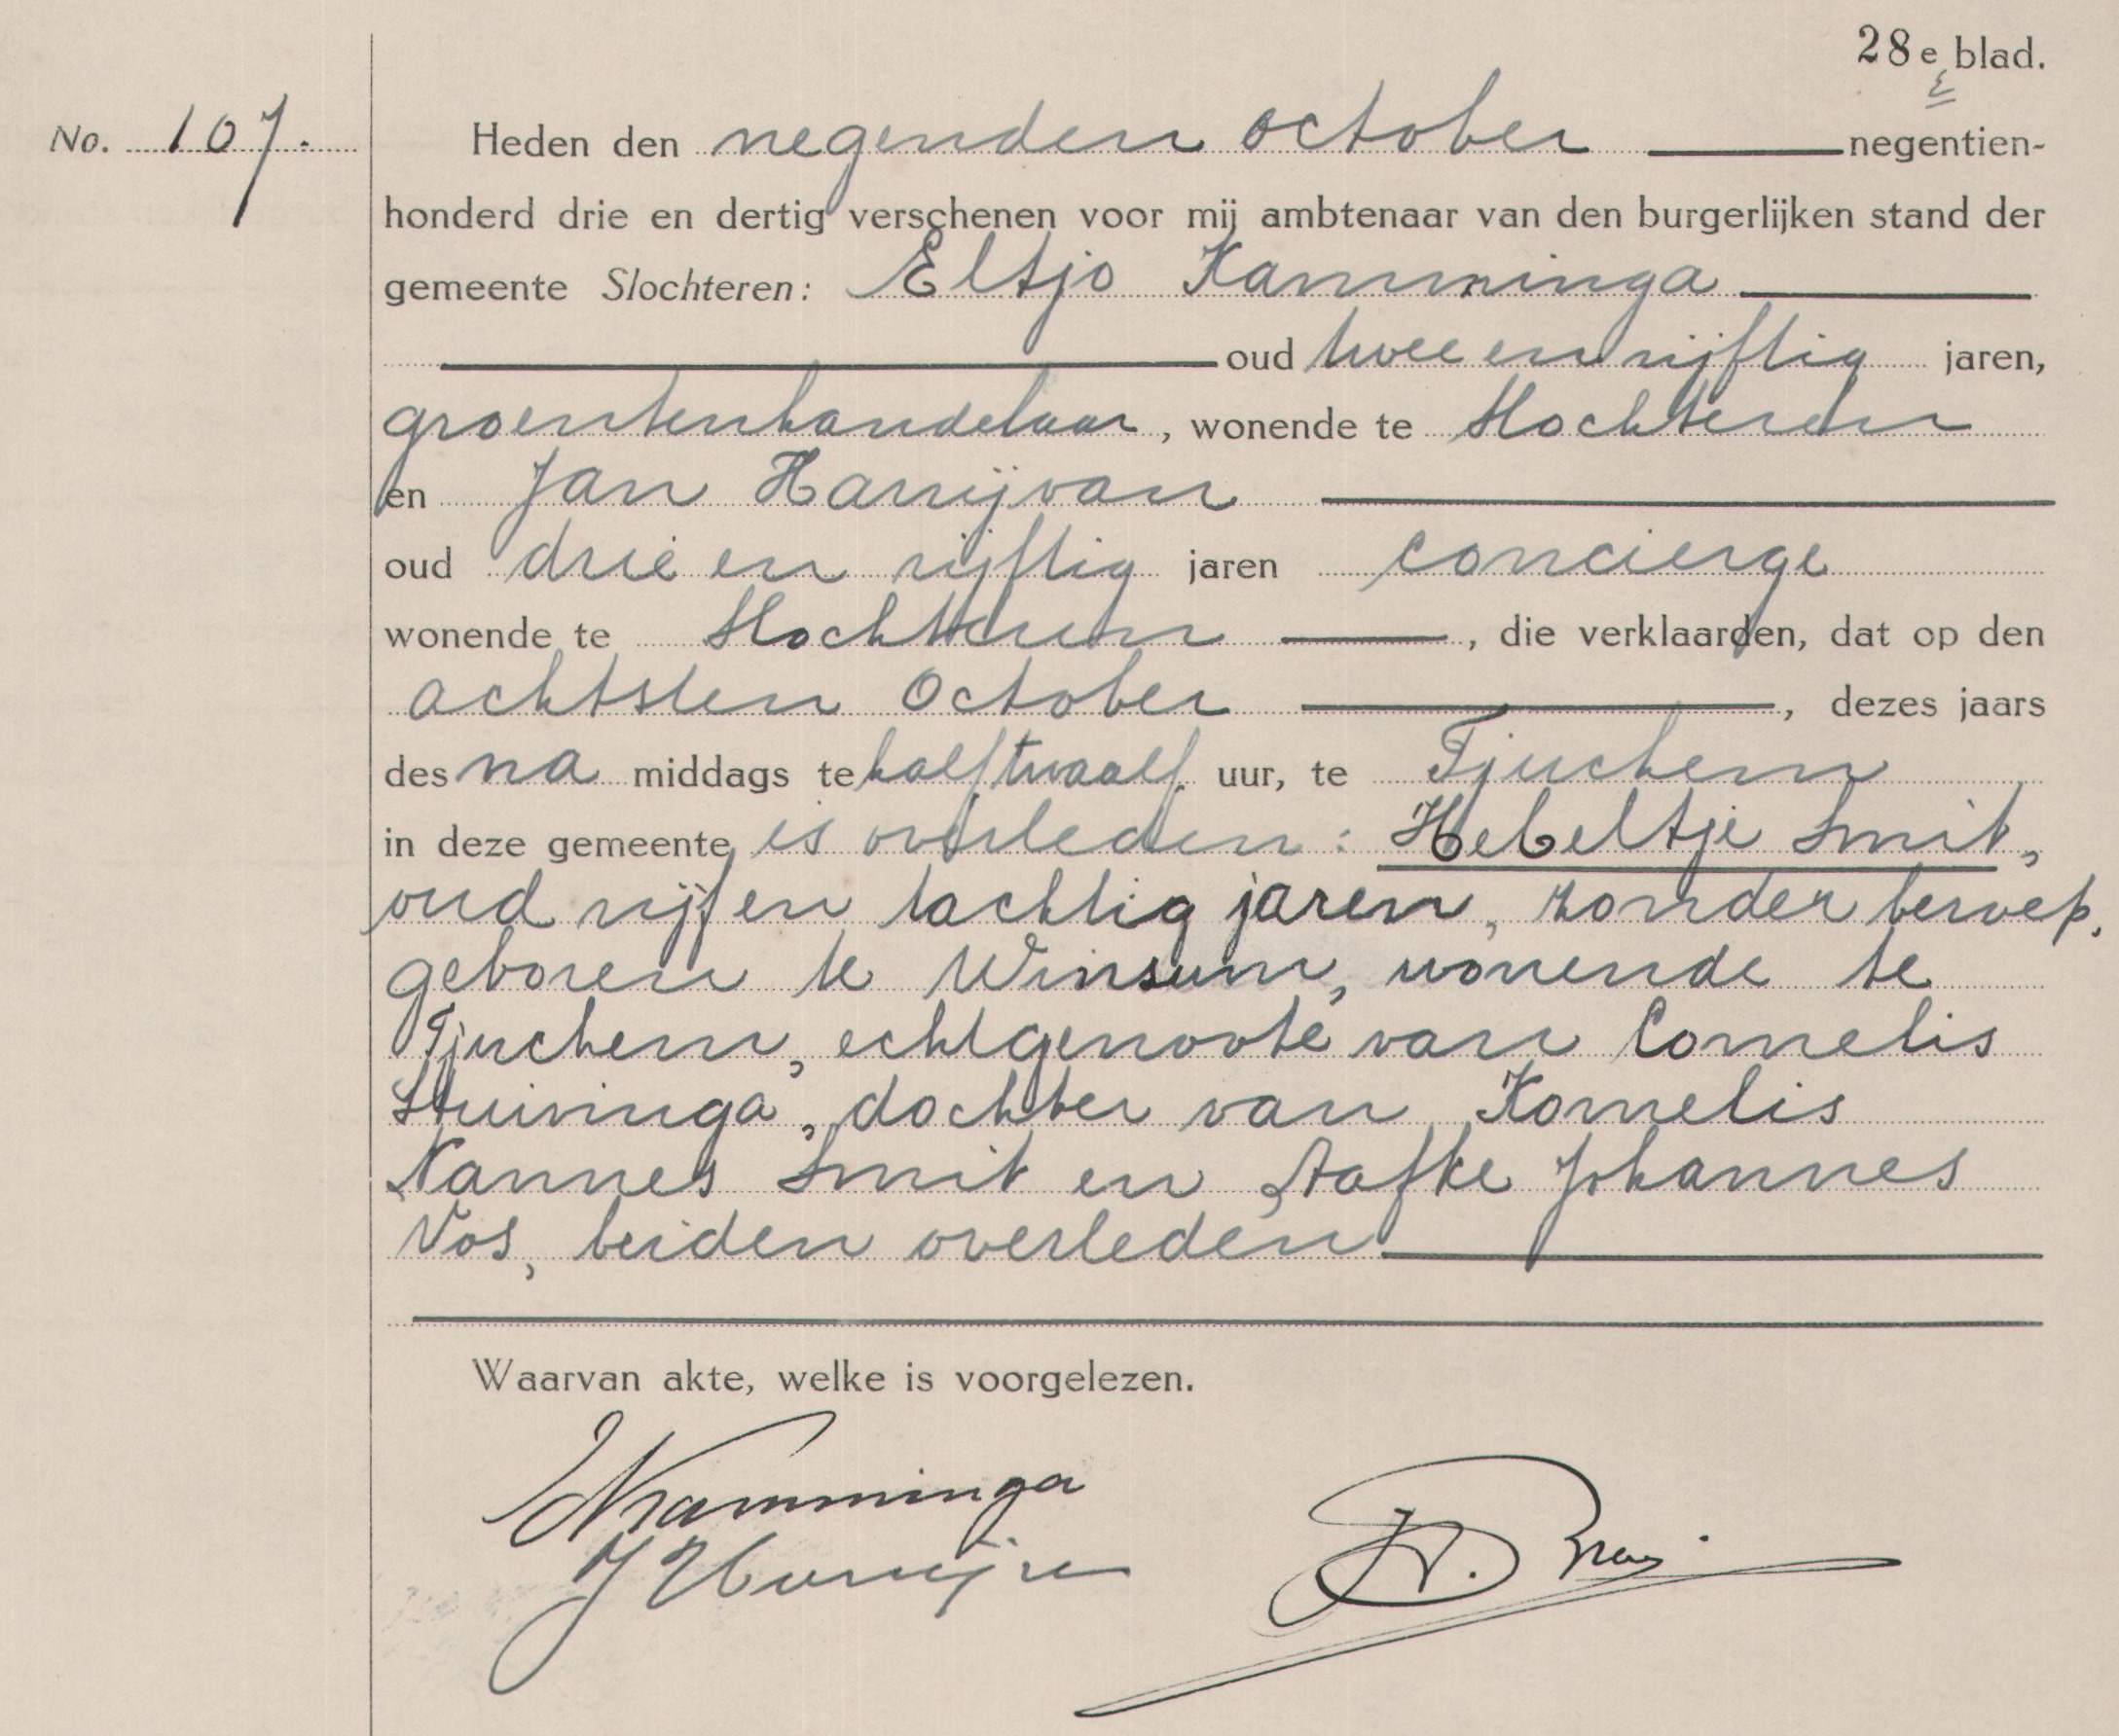 28e blad.
No. 107.
Heden den negenden october negentien-
honderd drie en dertig verschenen voor mij ambtenaar van den burgerlijken stand der
gemeente Slochteren: Eltjo Kamminga
oud twee en vijftig jaren,
groentenhandelaar, wonende te Slochteren
en Jan Harrijvan
oud drie en vijftig jaren concierge
wonende te Slochteren, die verklaarden, dat op den
achtsten October, dezes jaars
des na middags te half twaalf uur, te Tjuchem
in deze gemeente is overleden: Hebeltje Smit,
oud vijf en tachtig jaren, zonder beroep,
geboren te Winsum, wonende te
Tjuchem, echtgenoote van Cornelis
Stuivinga, dochter van Kornelis
Nannes Smit en Aafke Johannes
Vos, beiden overleden
Waarvan akte, welke is voorgelezen.
EKamminga